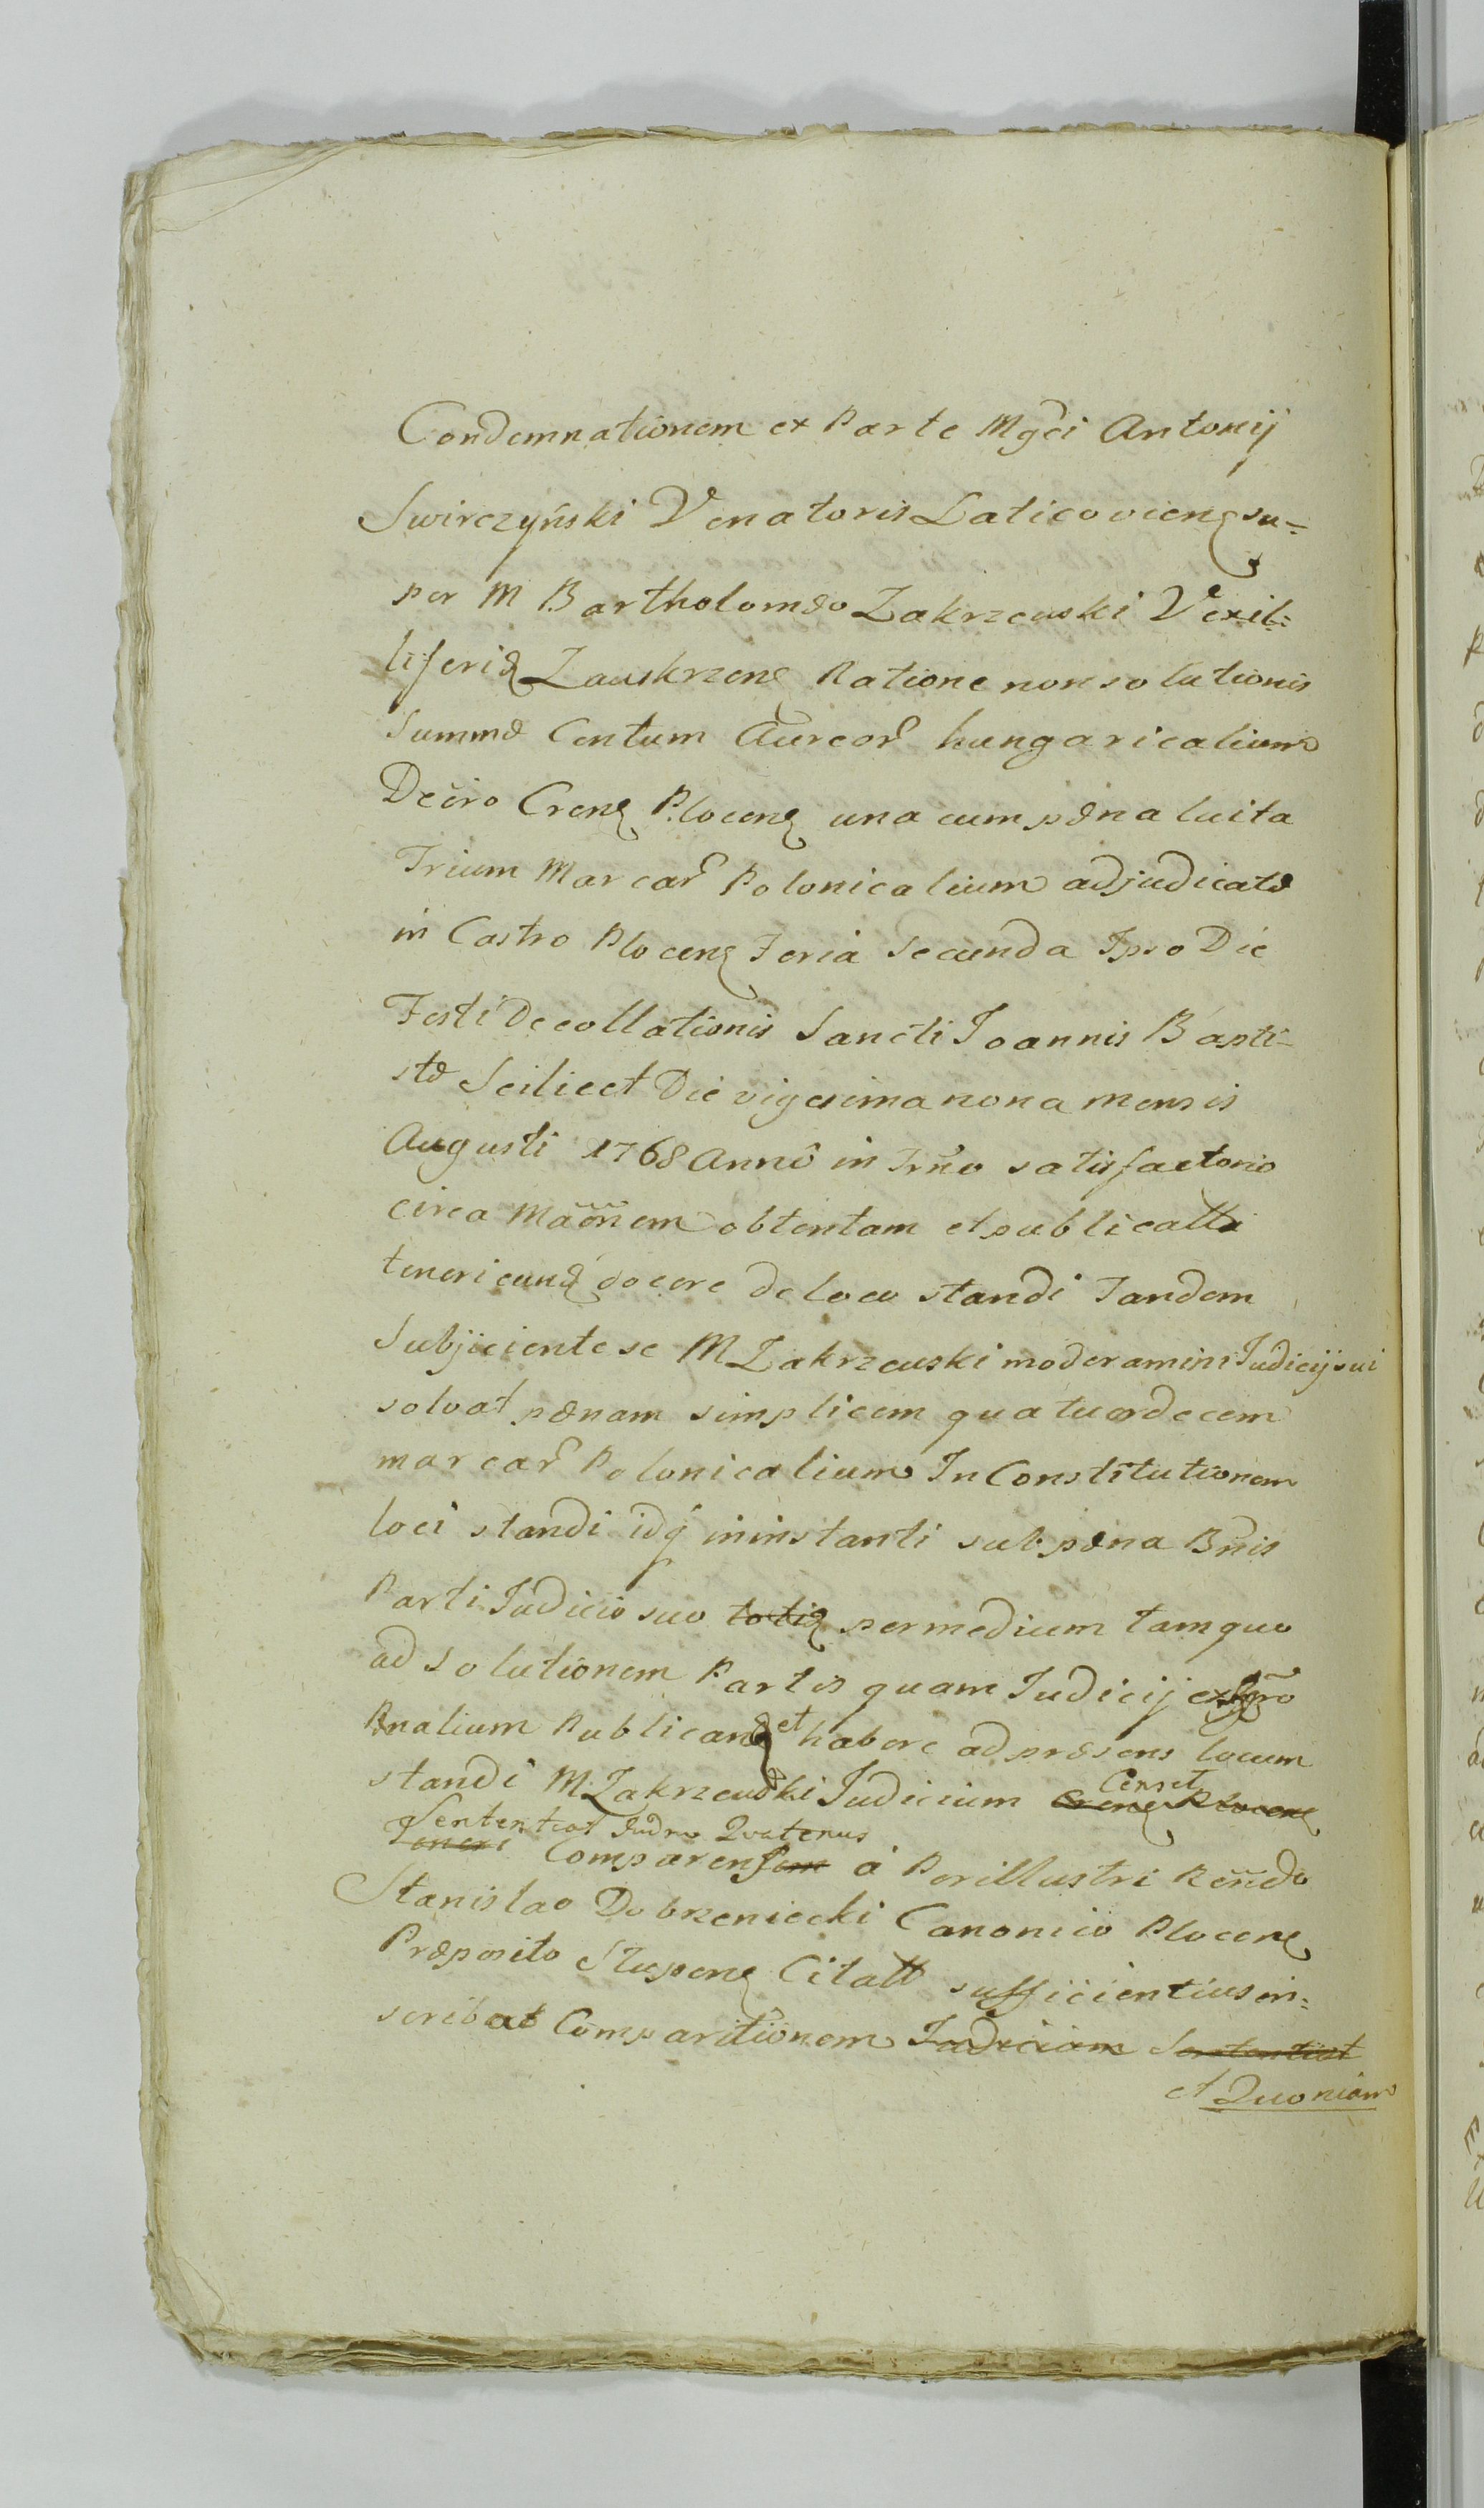 Condemnationem ex Parte Mgci Antonij
Swirczyński Venatoris Laticoviens su=
per M Bartholomæo Zakrzewski Vexil=
liferidæ Zauskrzens Ratione non solutionis
Summæ Centum Aureor hungaricalium
Decro Crens Plocens una cum pæna luita
Trium Marcar Polonicalium adjudicatæ
in Castro Plocens Feria Secunda Ipso Die
Festi Decollationis Sancti Joannis Bapti-
stæ Scilicet Die vigesima nona mensis
Augusti 1768 Annô in Trno satisfactorio
circa Mãõnem obtentam et publicatt
teneri eundq docere de loco standi Tandem
Subjiciente se M Zakrzewski moderamini Judicij sui
solvat pænam simplicem quatuordecem
marcar Polonicalium In Constitutionem
loci standi idq in instanti sub pæna Bnis
Parti Judicio suo totiq per medium tam quo
ad solutionem Partis quam Judicij ex
Pænalium Publicand et habere ad præsens locum
standi M. Zakrzewski Judicium Crens Plocens Censet
Sententiat Judm Quatenus
Teneri Comparens a Perillustri Rendo
Stanislao Dobrzeniecki Canonico Plocens
Præposito Slupens Citatt sufficientius in=
scribat Comparitionem Judicium Sententiat
et Quoniam